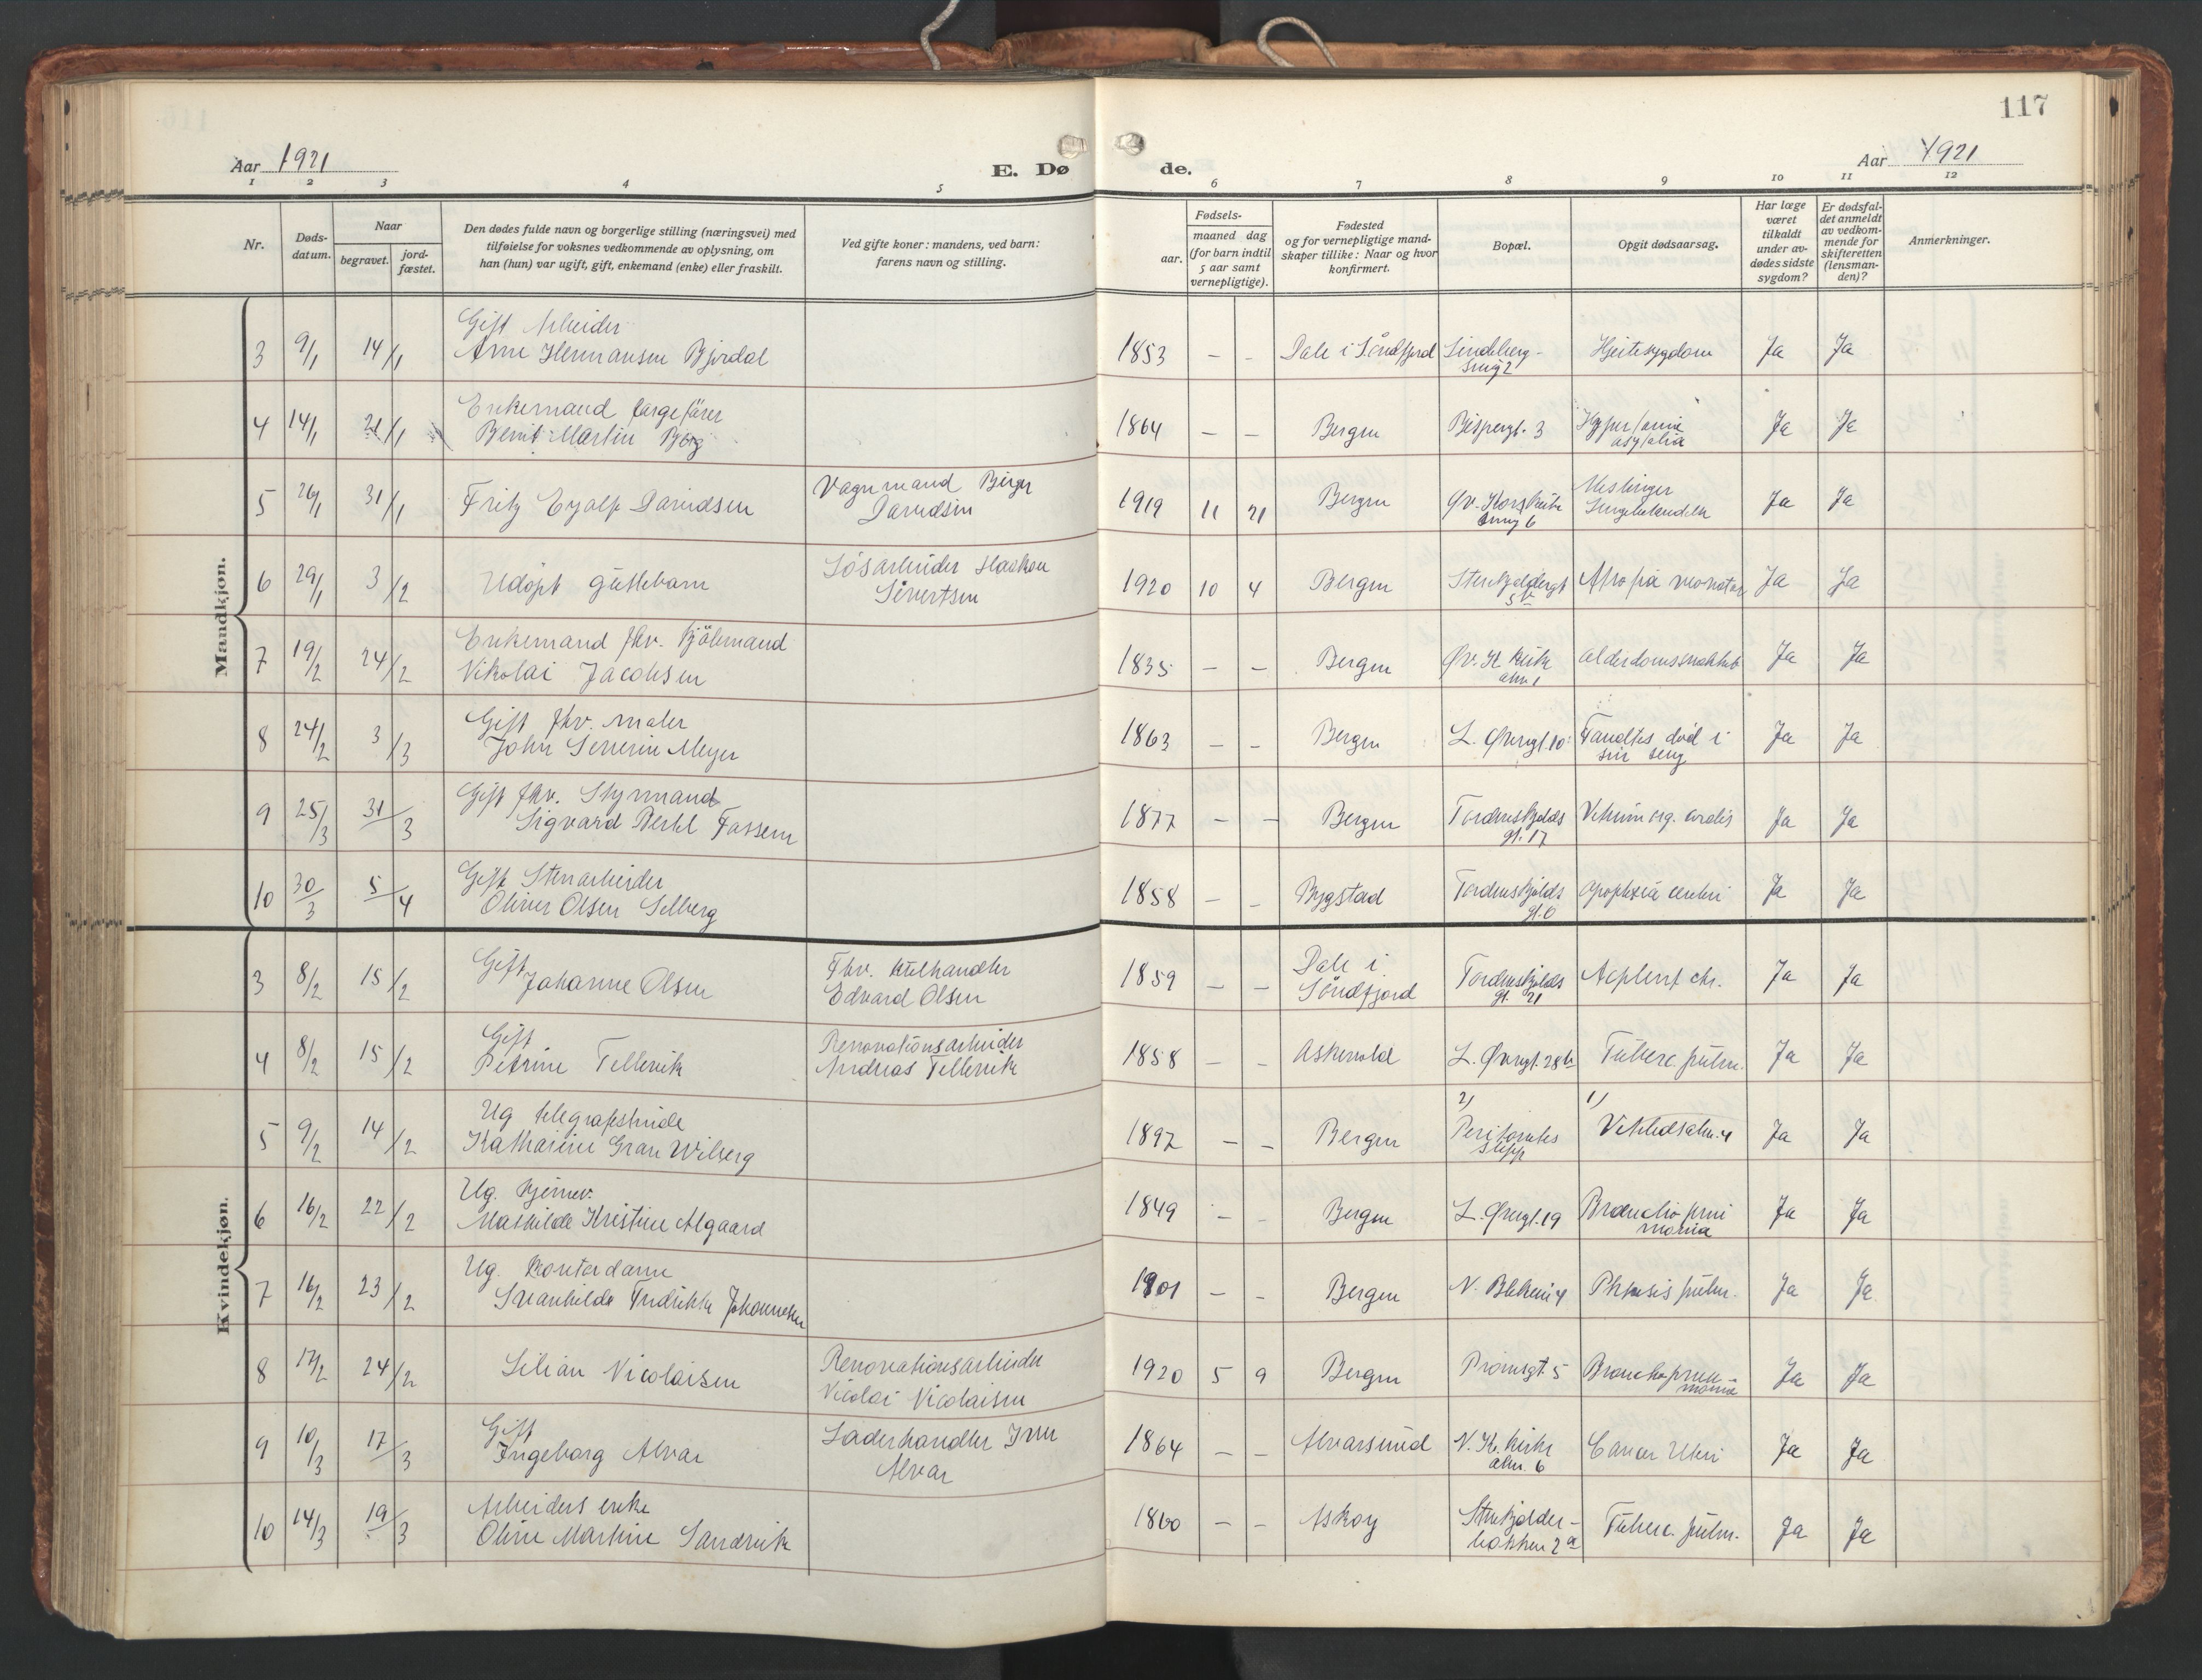 117
Aar 1921
E. Dø
de.
Aar 1921
1 2 3 4 5 6 7 8 9 10 11 12
Nr.
Døds-
datum.
Naar
begravet.
jord-
fæstet.
Den dødes fulde navn og borgerlige stilling (næringsvei) med
tilføielse for voksnes vedkommende av oplysning, om
han (hun) var ugift, gift, enkemand (enke) eller fraskilt.
Ved gifte koner: mandens, ved barn:
farens navn og stilling.
Fødsels-
aar.
maaned dag
(for barn indtil
5 aar samt
vernepligtige).
Fødested
og for vernepligtige mand-
skaper tillike: Naar og hvor
konfirmert.
Bopæl.
Opgit dødsaarsag.
Har læge
været
tilkaldt
under av-
dødes sidste
sygdom?
Er dødsfal-
det anmeldt
av vedkom-
mende for
skifteretten
(lensman-
den)?
Anmerkninger.
Mandkjøn.
Gift Arbeider
3 9/1 14/1 Arne Hermansen Bjordal 1853 – – Dale i Søndfjord Lindeberg-
smug 2 Hjertesygdom Ja Ja
Enkemand
4 14/1 21/1 Martin 1864 – – Bergen Bispengt. 3 Ja Ja
5 26/1 31/1 Fritz Eyolf Davidsen Vognmand Birger
Davidsen 1919 11 21 Bergen Øv. Korskirke
smug 6 Ja Ja
6 29/1 3/2 Udøpt guttebarn Løsarbeider Haakon
Sivertsen 1920 10 4 Bergen Ja Ja
Enkemand fhv.
7 19/2 24/2 Nikolai Jacobsen 1835 – – Bergen Øv. K. kirke
alm 1 Ja Ja
Gift fhv. maler
8 24/2 3/3 John Severin Meyer 1863 – – Bergen L. Øvregt. 10 Fandtes død i
sin seng Ja Ja
Gift fhv. Styrmand
9 25/3 31/3 Sigvard Bertel Fassem 1877 – – Bergen Tordenskjolds
gt. 17 Ja Ja
Gift Stenarbeider
10 30/3 5/4 Oliver Olsen Selberg 1858 – – Bygstad Tordenskjolds
gt. 6 Apoplexia cerebri Ja Ja
Kvindekjøn.
3 8/2 15/2 Gift Johanne Olsen Fhv. kulhandler
Edvard Olsen 1859 – – Dale i
Søndfjord Tordenskjolds
gt. 21 Ja Ja
Gift
4 8/2 15/2 Petrine Tellevik Renovationsarbeider
Andreas Tellevik 1858 – – Askevold L. Øvregt. 28b Tuberc. pulm. Ja Ja
Ug telegrafistinde 2) 1)
5 9/2 14/2 Katharine Gran Wiberg 1897 – – Bergen Peritonitis Ja Ja
Ug.
6 16/2 22/2 Mathilde Kristine Algaard 1849 – – Bergen L. Øvregt. 19 Bronchopneu
monia Ja Ja
Ug. Kontordame
7 16/2 23/2 Svanhilde Fredrikke Johannesen 1901 – – Bergen N. Blekevei 4 Phtisis pulm. Ja Ja
8 17/2 24/2 Lilian Nicolaisen Renovationsarbeider
Nicolai Nicolaisen 1920 5 9 Bergen Prømsgt. 5 Bronchopneu-
monia Ja Ja
Gift
9 10/3 17/3 Ingeborg Alvar Læderhandler Iver
Alvar 1864 – – Alversund N. K. kirke
alm. 6 Cancer Uteri Ja Ja
Arbeiders enke
10 14/3 19/3 Oline Martine Sandvik 1860 – – Askøy Stenkjelder-
bakken 2a Tuberc. pulm. Ja Ja